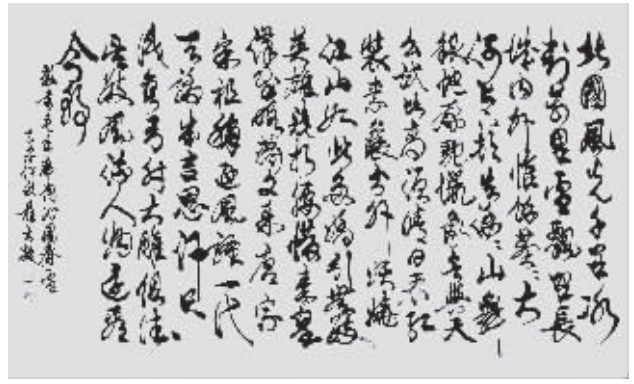 北國風光千里冰
封萬里雪飄望長
城内外惟餘莽〻大
河上下頓失滔〻山舞
銀蛇原馳蠟象欲與天
公試比高須晴日看紅
裝素裹分外妖嬈
江山如此多嬌引無數
英雄競折腰惜秦皇
漢武略輸文采唐宗
宋祖稍遜風騷一代
天驕成吉思汗只
識彎弓射大雕俱往
矣數風流人物還看
今朝
毛主席詞沁園春雪